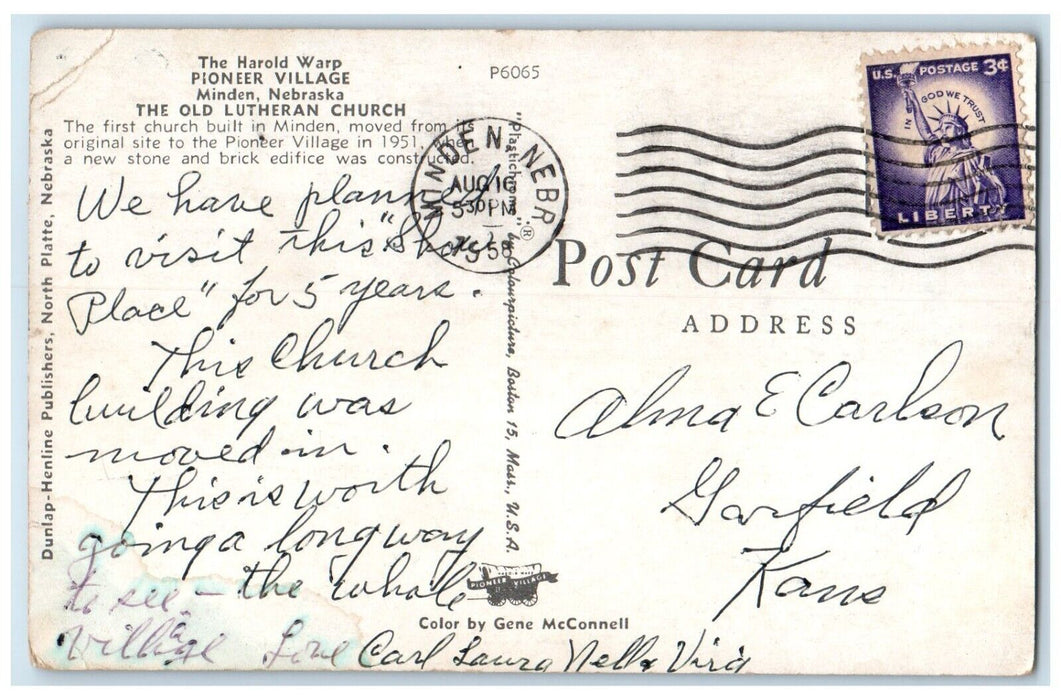 The Harold Warp
PIONEER VILLAGE
Minden, Nebraska
THE OLD LUTHERAN CHURCH
The first church built in Minden, moved from its
original site to the Pioneer Village in 1951, when
a new stone and brick edifice was constructed.
P6065
We have planned
to visit this "Show
Place" for 5 years.
This Church
building was
moved in.
This is worth
going a long way
to see — the whole
village Love Carl Laura Nella Virg
Dunlap-Henline Publishers, North Platte, Nebraska
"Plastichrome" ® by Colourpicture, Boston 15, Mass., U.S.A.
MINDEN, NEBR
AUG 16
530 PM
1958
U.S. POSTAGE 3¢
IN GOD WE TRUST
LIBERTY
Post Card
ADDRESS
Alma E Carlson
Garfield
Kans
PIONEER VILLAGE
Color by Gene McConnell